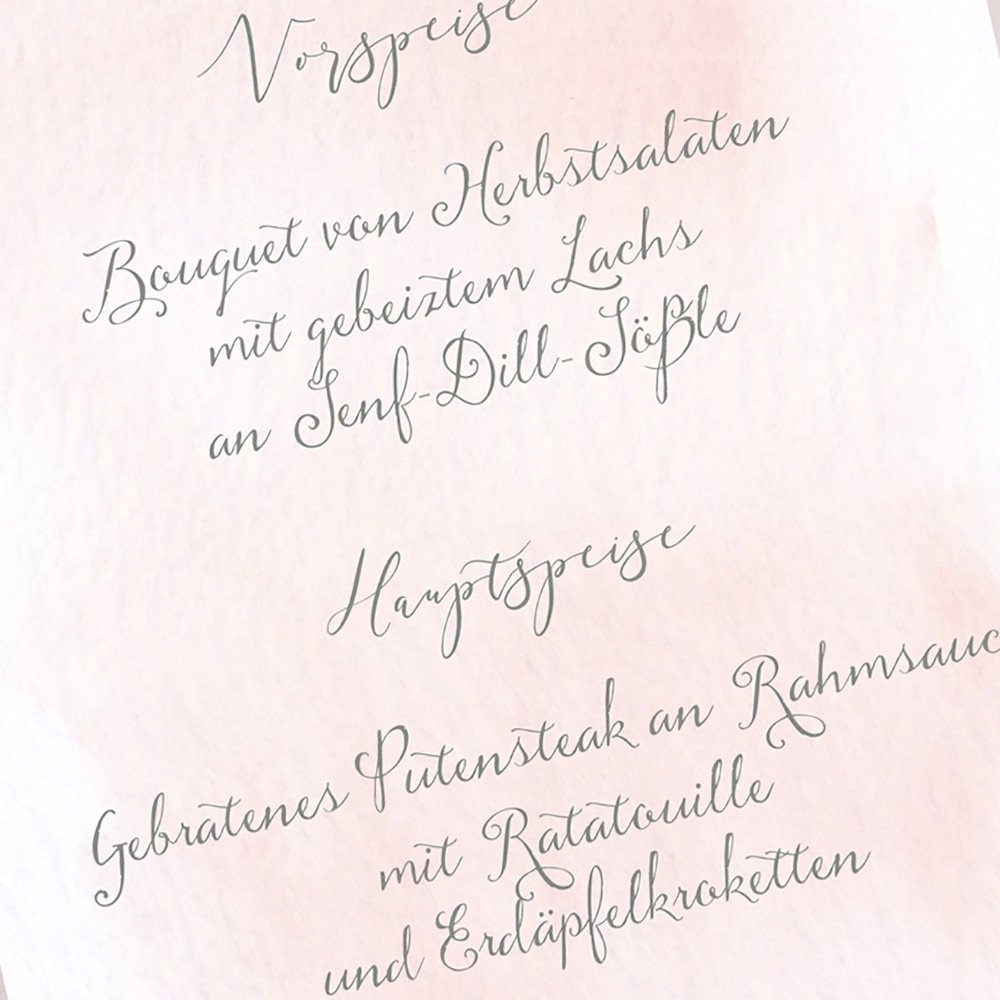 Vorspeise
Bouquet von Herbstsalaten
mit gebeiztem Lachs
an Senf-Dill-Sößle
Hauptspeise
Gebratenes Putensteak an Rahmsauc
mit Ratatouille
und Erdäpfelkroketten